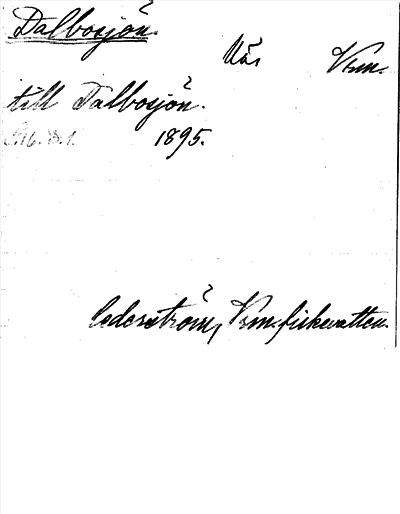 Dalbosjön.
Vrm.
till Dalbosjön.
1895.
Cederström, Vrm. fiskevatten.